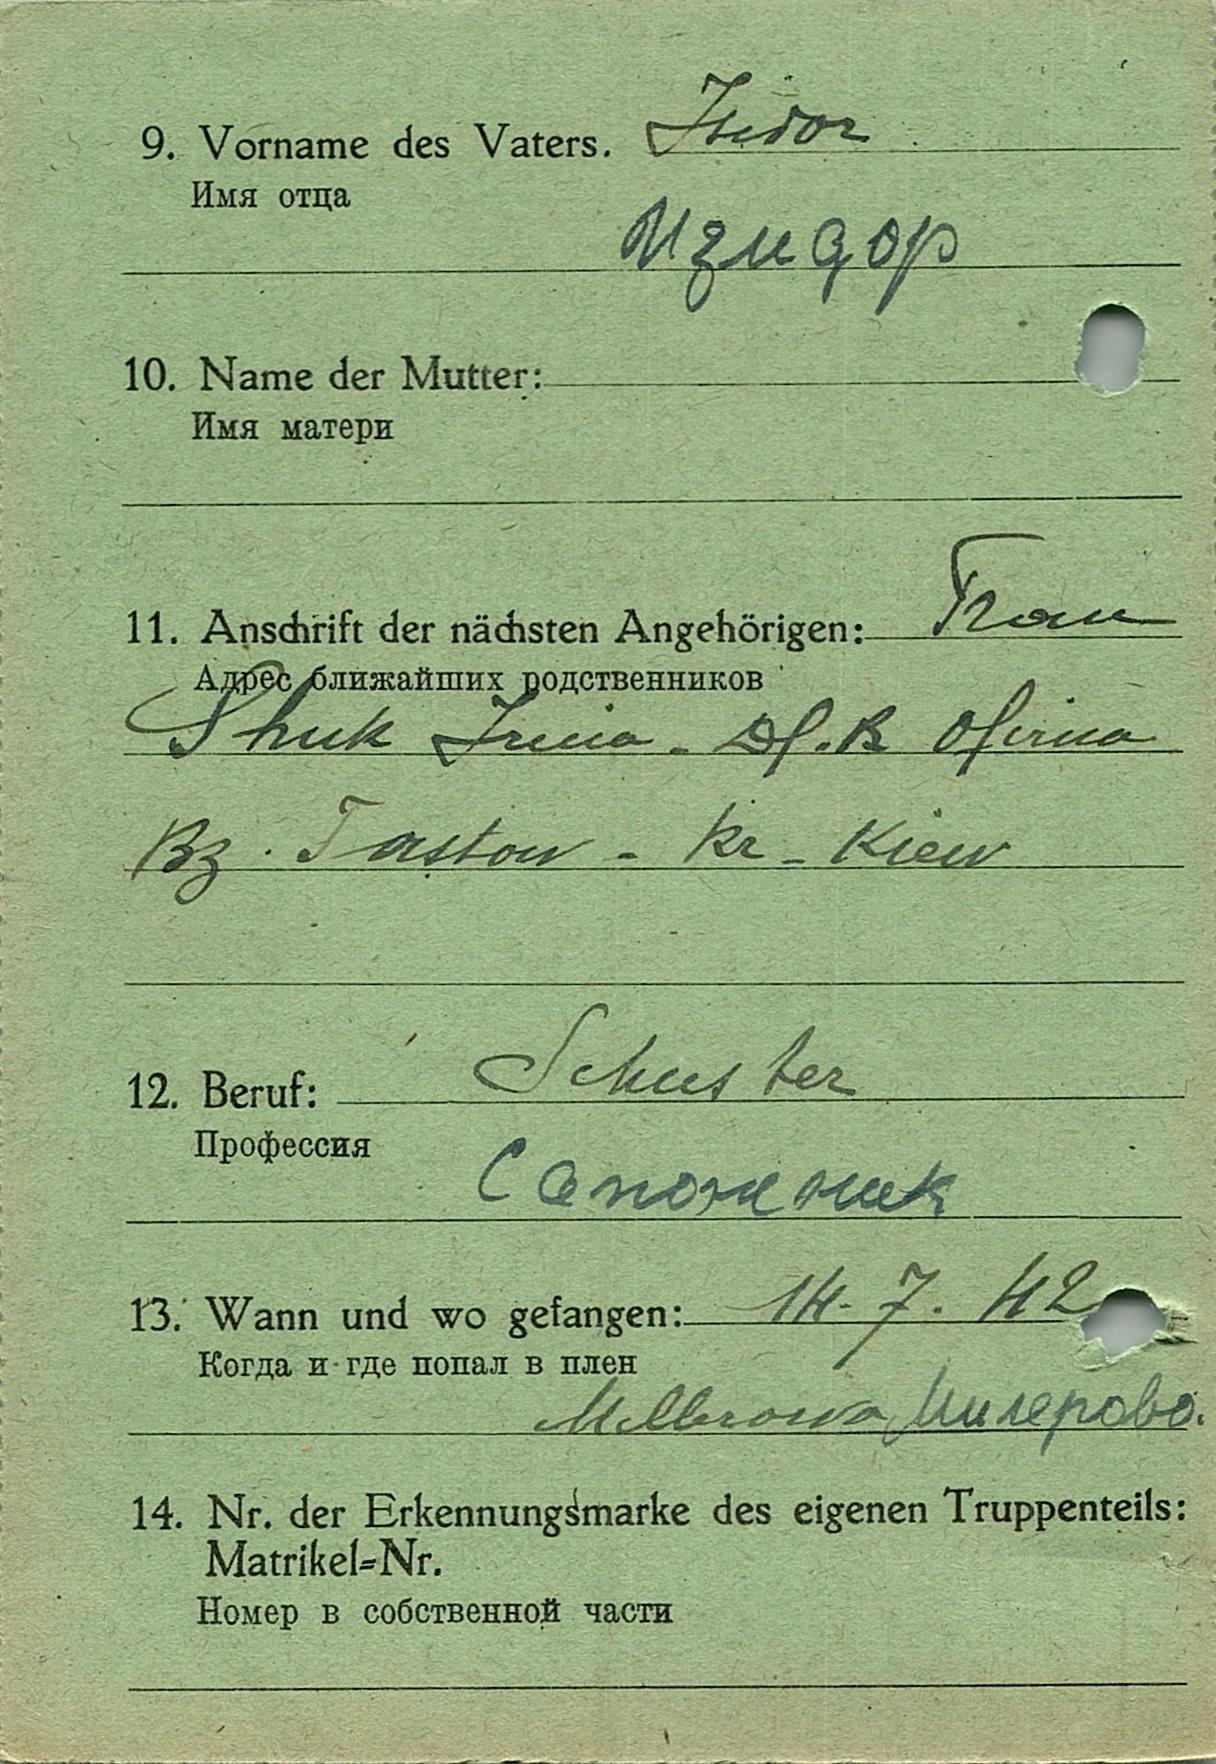 9. Vorname des Vaters. Isidor
Имя отца
Изидор
10. Name der Mutter:
Имя матери
11. Anschrift der nächsten Angehörigen: Frau
Адрес ближайших родственников
Shuk Irina - Df. B Ofirna
Bz. Fastow - Kr - Kiew
12. Beruf: Schuster
Профессия
Сапожник
13. Wann und wo gefangen: 14. 7. 42
Когда и где попал в плен
Millerowo Милерово.
14. Nr. der Erkennungsmarke des eigenen Truppenteils:
Matrikel=Nr.
Номер в собственной части